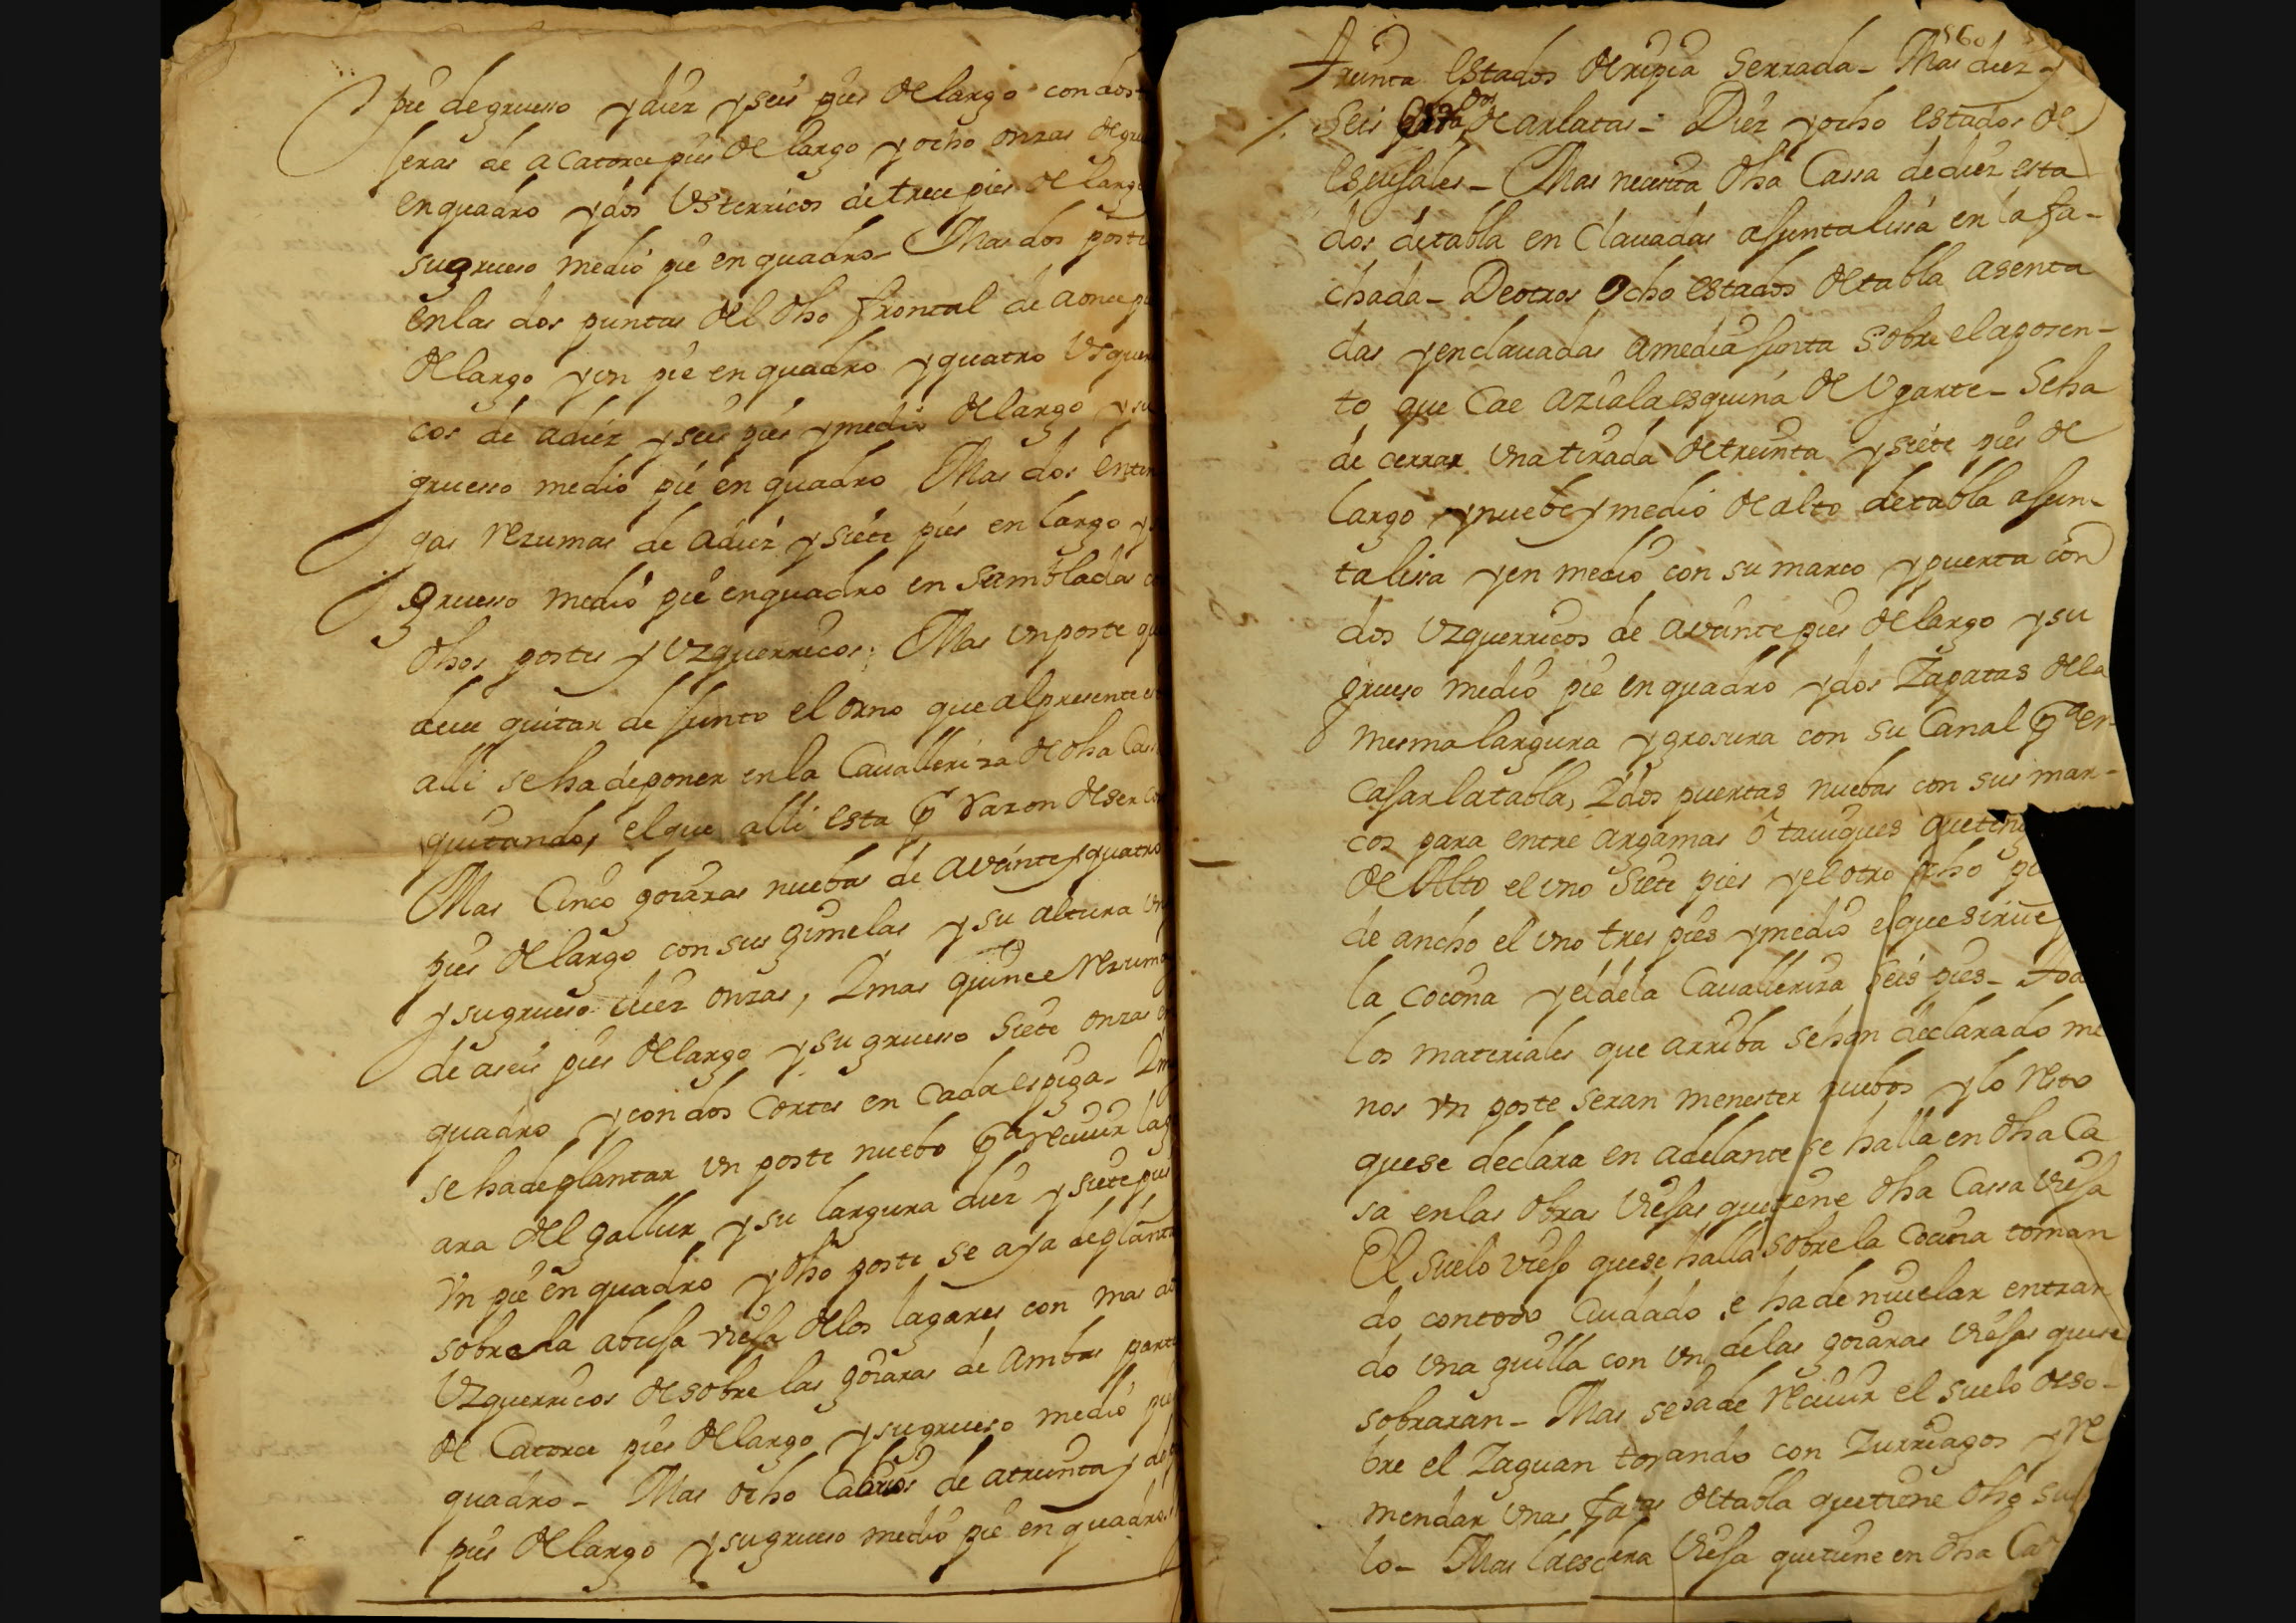 pie de grueso y diez y seis pies de largo con dos
seras de a catorce pies de largo y ocho onzas de gru
en quadro y dos Usterricos de trece pies de largo
su grueso medio pie en quadro_ Mas dos poste
en las dos puntas del dho frontal de a once pi
de largo y un pie en quadro y quatro Usquer
cos de a diez y seis pies y medio de largo y su
grueso medio pie en quadro Mas dos entre
gas rezumas de a diez y siete pies en largo y
grueso medio pie en quadro en sambladas co
dhos postes y Uzquerricos; Mas un poste que
deue quitar de junto el orno que al presente es
alli se ha de poner en la Caualleriza de dha Cas
quitando, el que alli esta pr razon de ser
Mas Cinco goiaras nuebas de a veinte y quatro
pies de largo con sus gimelas y su altura un
y su grueso diez onzas, Imas quince rezuma
de a seis pies de largo y su grueso siete onzas en
quadro y con dos Cortes en Cada espiga_ Im
se ha de plantar un poste nuebo pa reciuir la g
ara del gallur y su largura diez y siete pies
Un pie en quadro y dho poste se aya de planta
sobre la abusa viesa de los lagares con mas do
Uzquerricos de sobre las goiaras de Ambas parte
de Catorce pies de largo y su grueso medio pie
quadro_ Mas ocho Cabrios de a treinta y do
pies de largo y su grueso medio pie en quadro.
560
Treinta estados de ripia serrada_ Mas diez y
seis dos de arlatas_ Diez y ocho estados de
esensales_ Mas necesita dha Cassa de diez esta
dos de tabla en clauadas a junta lissa en la fa-
chada_ De otros Ocho estados de tabla asenta
das y enclauadas a media junta sobre el aposen-
to que Cae azia la esquina de Ugarte_ Se ha
de cerrar una tirada de treinta y siete pies de
largo y nuebe y medio de alto de tabla a jun-
ta lissa y en medio con su marco y puerta con
dos Uzquerricos de a veinte pies de largo y su
grueso medio pie en quadro y dos Zapatas de la
mesma largura y grosura con su Canal pa en-
casar la tabla, I dos puertas nuebas con sus mar-
cos para entre argamas ô tauiques que teng
de Alto el uno siete pies y el otro ocho pi
de ancho el uno tres pies y medio el que sirue
la cocina y el de la Caualleriza seis pies_ tod
los materiales que arriba se han declarado me
nos un poste seran menester nuebos y lo resto
que se declara en adelante se halla en dha Ca
sa en las obras viesas que tiene dha Cassa viesa
El suelo vieso que se halla sobre la Cocina toman
do con todo Cuidado se ha de niuelar entran
do una quilla con un de las goiaras viesas que se
sobraran_ Mas se ha de reciuir el suelo de so-
bre el Zaguan tomando con Zurriagos y re
mendar unas faltas de tabla que tiene dho sue
lo_ Mas la escalera viesa que tiene en dha Ca